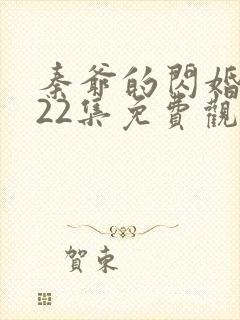 秦爺的閃婚
22集免費觀
賀東